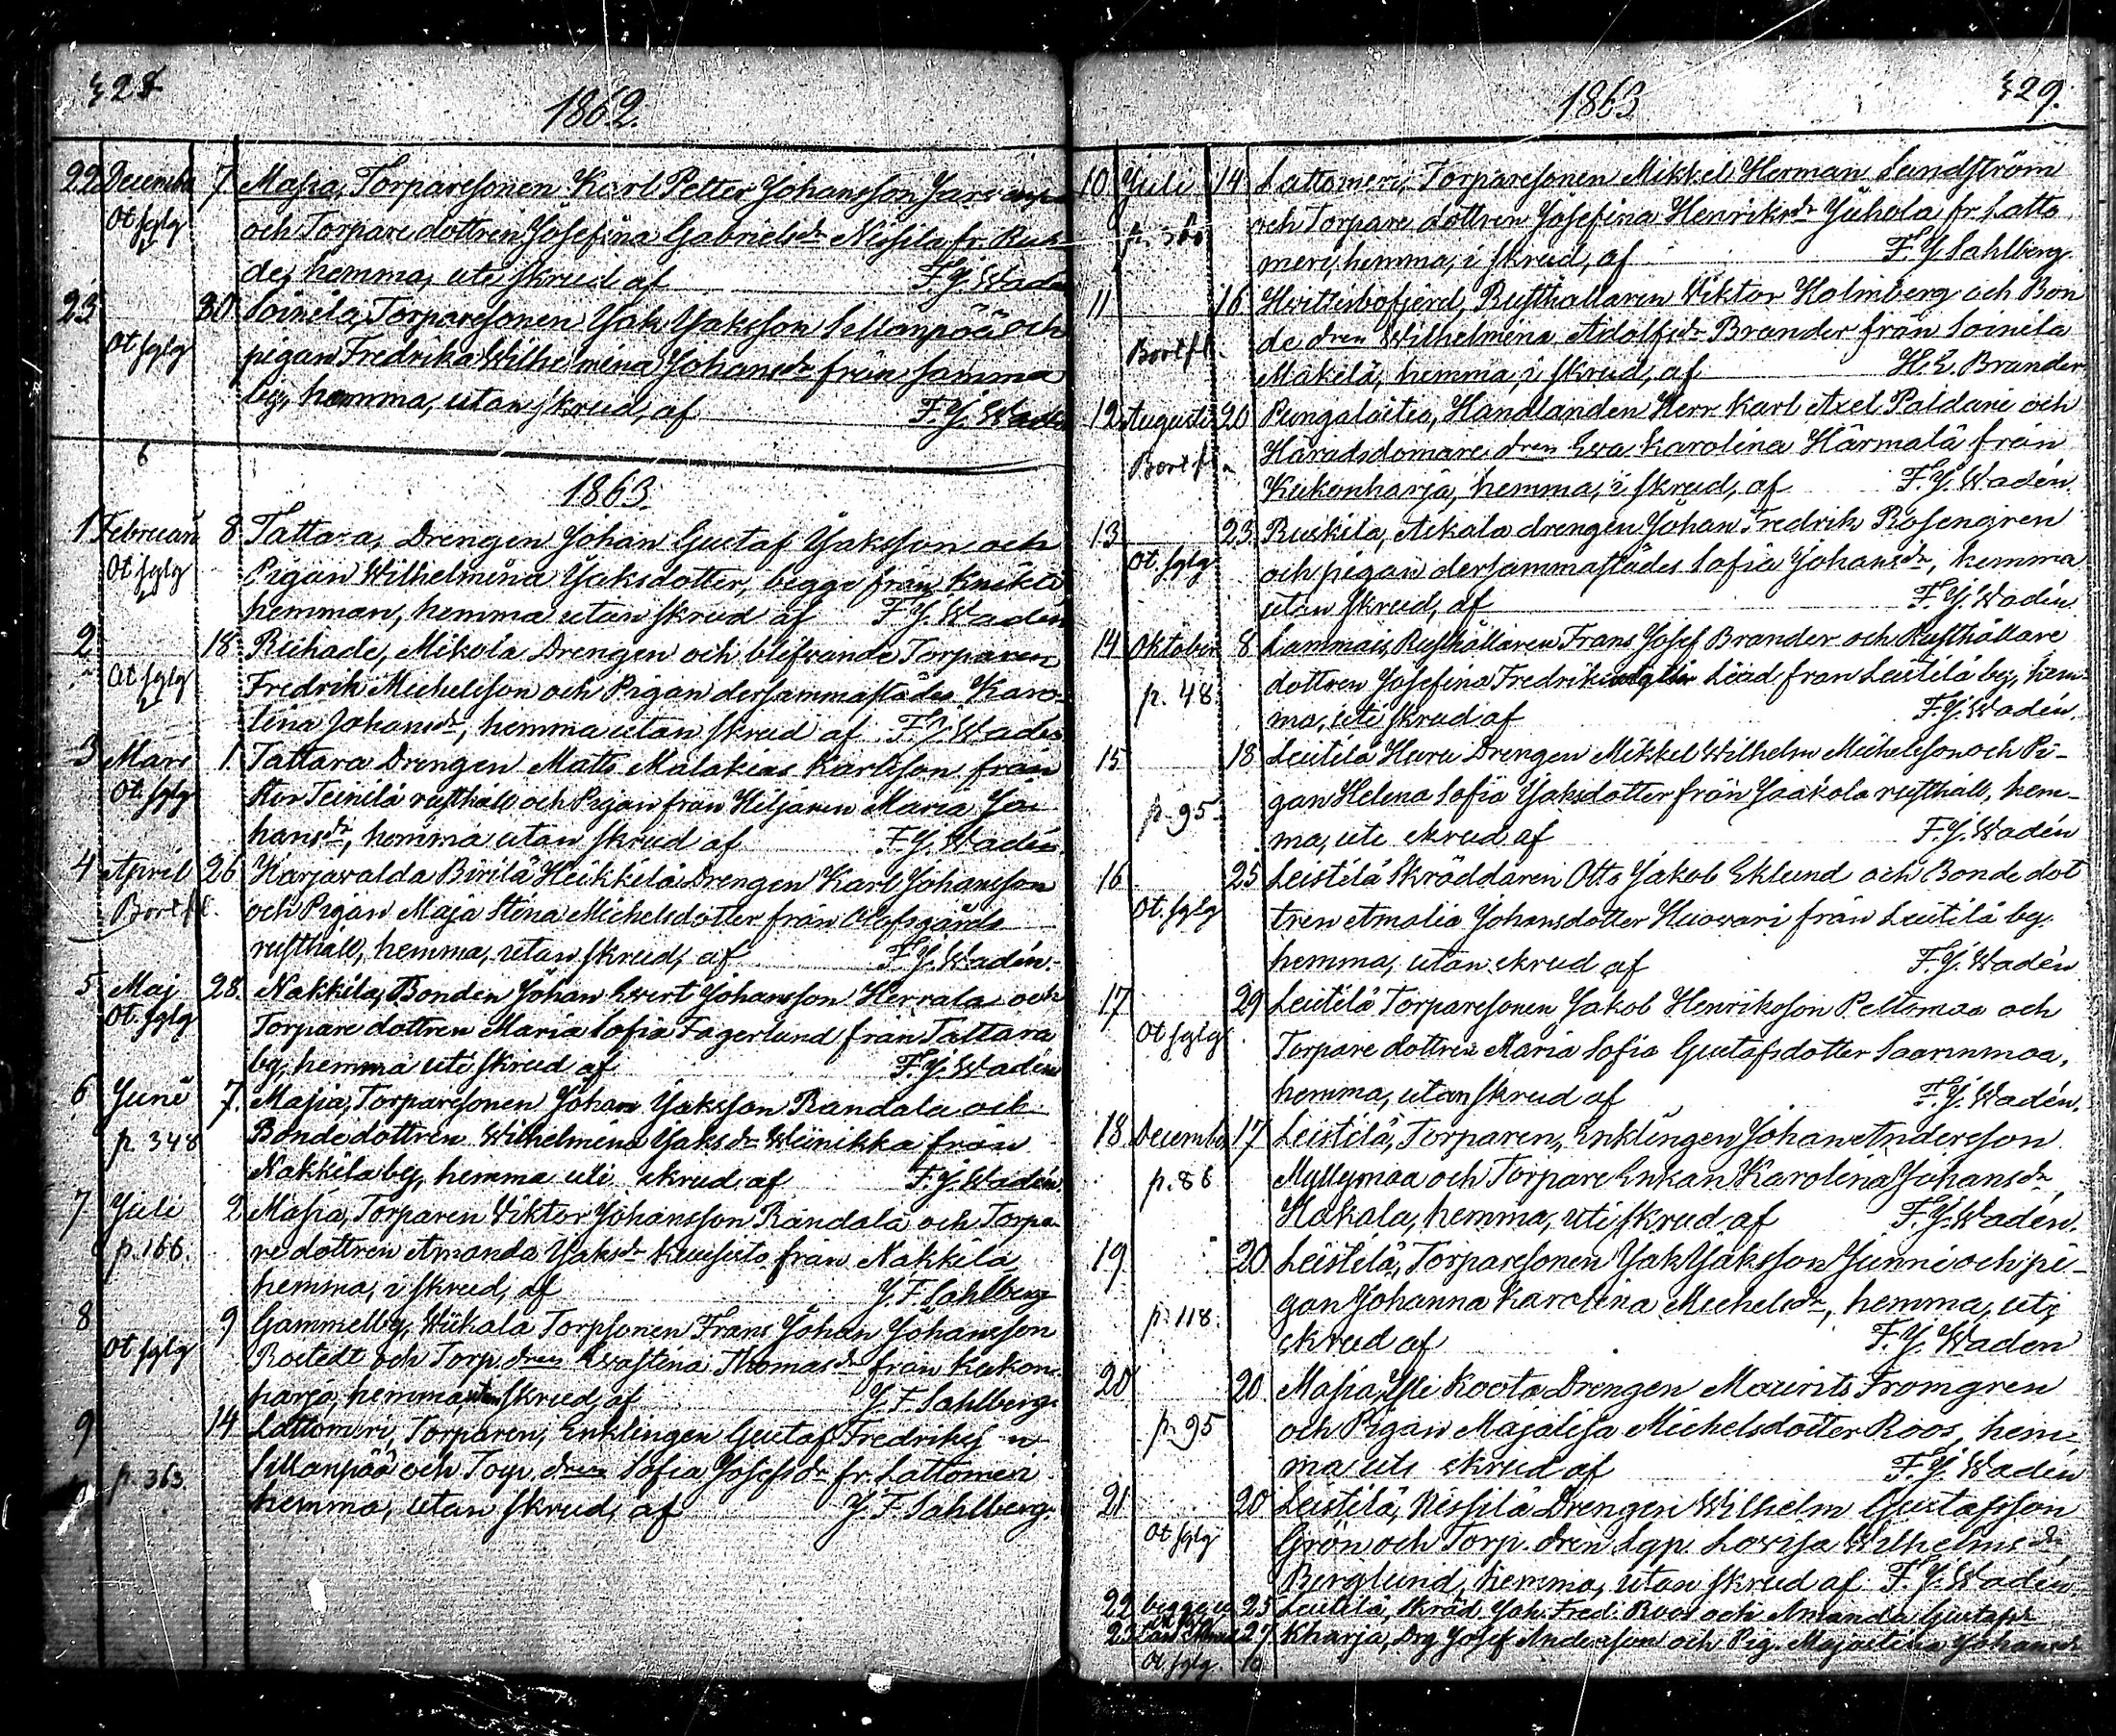 428
1862.
22 December 7. Masia, Torparesonen Karl Petter Johansson
Ot. fglg och Torpare dottren Josefina Gabrielsdr Nissila fr.
hemma, uti skrud af F. J. Wadén
23 30 Soinila, Torparesonen Jak Jaksson Sillanpää och
Ot. fglg pigan Fredrika Wilhelmina Johansdr från samma
by, hemma, utan skrud, af F. J. Wadén
6
1863.
1 Februari 8 Tattara, Drengen Johan Gustaf Jaksson och
Ot fglg Pigan Wilhelmina Jaksdotter, begge från Knikti
hemman, hemma utan skrud af F. J. Wadén
2 18. Ruhade, Mikola Drengen och blifvande Torparen
Ot fglg Fredrik Michelsson och Pigan dersammastädes Karo-
lina Johansdr, hemma utan skrud af F. J. Wadén
3 Mars 1. Tattara Drengen Matts Malakias Karlsson från
Ot. fglg Stor Teinilä rusthåll och Pigan från Hiljanen Maria Jo-
hansdr, hemma utan skrud af F. J. Wadén.
4 April 26 Harjavalda Birilä Heikkilä Drengen Karl Johansson
Bortfl. och Pigan Maja Stina Michelsdotter från Olofsgårds
rusthåll, hemma, utan skrud, af F. J. Wadén.
5 Maj 28. Nakkila, Bonden Johan Evert Johansson Herrala och
Ot. fglg Torpare dottren Maria Sofia Fagerlund från Tattara
by, hemma uti skrud af F. J. Wadén
6 Juni 7. Masia, Torparesonen Johan Jaksson Randala och
p. 348 Bondedottren Wilhelmina Jaksdr Wiinikka från
Nakkila by, hemma uti skrud af F. J. Wadén
7. Juli 2 Masia, Torparen Viktor Johansson Randala och Torpa-
p. 166. re dottren Amanda Jaksdr Kuusisto från Nakkila,
hemma, i skrud, af J. F. Sahlberg
8 9 Gammelby, Wiikala Torpsonen Frans Johan Johansson
Ot fglg Rostedt och Torp. dren Evastina Thomasdr från Kukon-
harja, hemma, utan skrud, af J. F. Sahlberg.
9 14 Lattomeri, Torparen, Enklingen Gustaf Fredriksson
p. 363. Sillanpää och Torp. dren Sofia Josefsdr fr. Lattomeri
hemma, utan skrud, af J. F. Sahlberg.
1863
429.
10 Juli 14 Lattomeri, Torparesonen Mikkel Herman Sundström
och Torpare dottren Josefina Henriksdr Juhola fr. Latto
meri, hemma, i skrud, af F. J. Sahlberg.
11 16 Hvittisbofjerd, Rusthållaren Viktor Holmberg och Bon
Bortfl. de dren Wilhelmina Adolfsdr Brander från Soinila
Mäkelä, hemma, i skrud, af H. E. Brander.
12 Augusti 20 Pungalaitio, Handlanden Herr Karl Axel Paldani och
Bortfl. Häradsdomare dren Eva Karolina Härmälä från
Kukonharja, hemma, i skrud, af F. J. Wadén.
13 23. Ruskila, Aikala drengen Johan Fredrik Rosengren
Ot. fglg och pigan dersammastädes Sofia Johansdr, hemma
utan skrud, af F. J. Wadén.
14 Oktober 8 Lammais, Rusthållaren Frans Josef Brander och Rusthållare
p. 48. dottren Josefina Fredriksdotter från Leistilä by, hem-
ma, uti skrud af F. J. Wadén.
15 18 Leistilä Haru Drengen Mikkel Wilhelm Michelsson och Pi-
p. 95. gan Helena Sofia Jaksdotter från Jaakola rusthåll, hem-
ma, uti skrud af F. J. Wadén
16 25 Leistilä Skräddaren Otto Jakob Eklund och Bonde dot
Ot. fglg tren Amalia Johansdotter Huovari från Leistilä by.
hemma, utan skrud af F. J. Wadén
17 29 Leistilä Torparesonen Jakob Henriksson Peltomaa och
Ot fglg Torpare dottren Maria Sofia Gustafsdotter Saarinmaa,
hemma, utan skrud af F. J. Wadén.
18 December 17 Leistilä, Torparen, Enklingen Johan Andersson
p. 86 Myllymaa och Torpare Enkan Karolina Johansdr
Hakala, hemma, uti skrud af F. J. Wadén.
19 20 Leistilä, Torparesonen Jak Jaksson Junni och pi-
p. 118. gan Johanna Karolina Michelsdr, hemma, uti
skrud af F. J. Wadén
20 20. Masia, Yli Koota Drengen Maurits Fromgren
p. 95 och Pigan Majalisa Michelsdotter Roos, hem-
ma uti skrud af F. J. Wadén
21 20 Leistilä, Nissilä Drengen Wilhelm Gustafsson
Ot fglg Grön och Torp. dren Lovisa Wilhelmsdr
Berglund, hemma, utan skrud af F. J. Wadén
22 begge 25 Leistilä, Skräd. Joh. Fred. Roos och Amanda Gustafsdr
23 27 Kharja, Drg Josef Andersson och Pig. Majastina Johansdr
Ot. fglg. 10